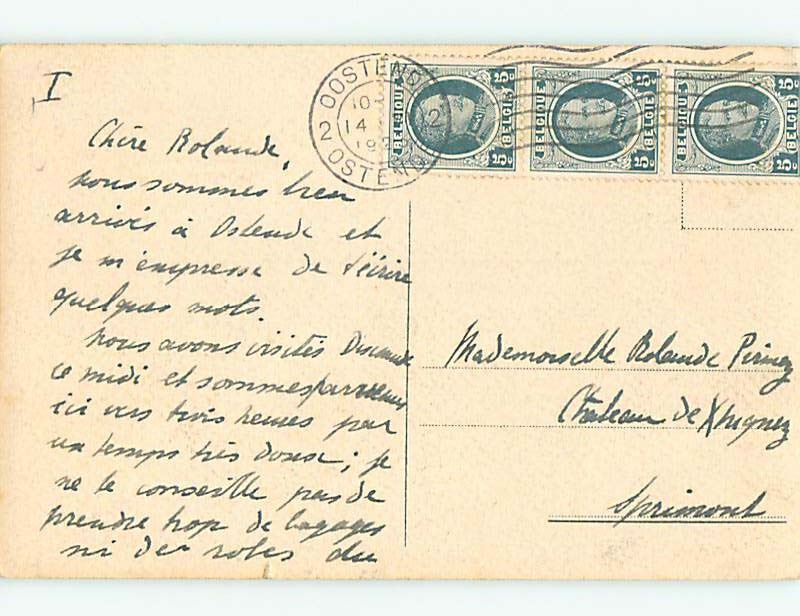 I
OOSTENDE
10
14
193
2 2
OSTENDE
BELGIQUE 25c BELGIE 25c
BELGIQUE 25c BELGIE 25c
BELGIQUE 25c BELGIE 25c
Chère Rolande,
nous sommes bien
arrivés à Ostende et
je m'empresse de t'écrire
quelques mots.
Nous avons visités
ce midi et sommes
ici vers trois heures par
un temps très doux ; je
ne te conseille pas de
prendre trop de bagages
ni de robes du
Mademoiselle Rolande
Château de
Sprimont